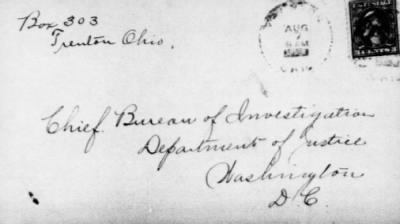 Box 303
Trenton Ohio.
AUG
7
AM
OHIO
Chief. Bureau of Investigation
Department of Justice
Washington
D C.